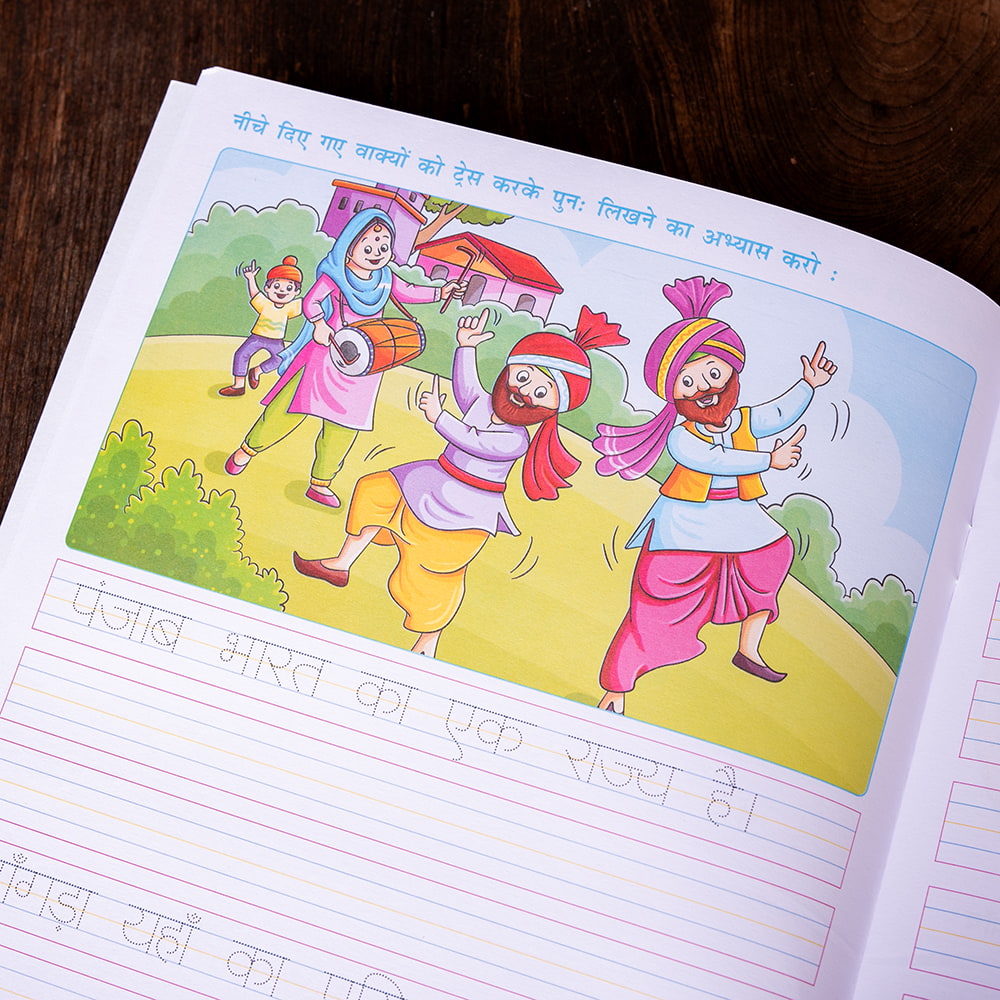 नीचे दिए गए वाक्यों को ट्रेस करके पुनः लिखने का अभ्यास करो :
पंजाब भारत का एक राज्य है।
यहाँ का